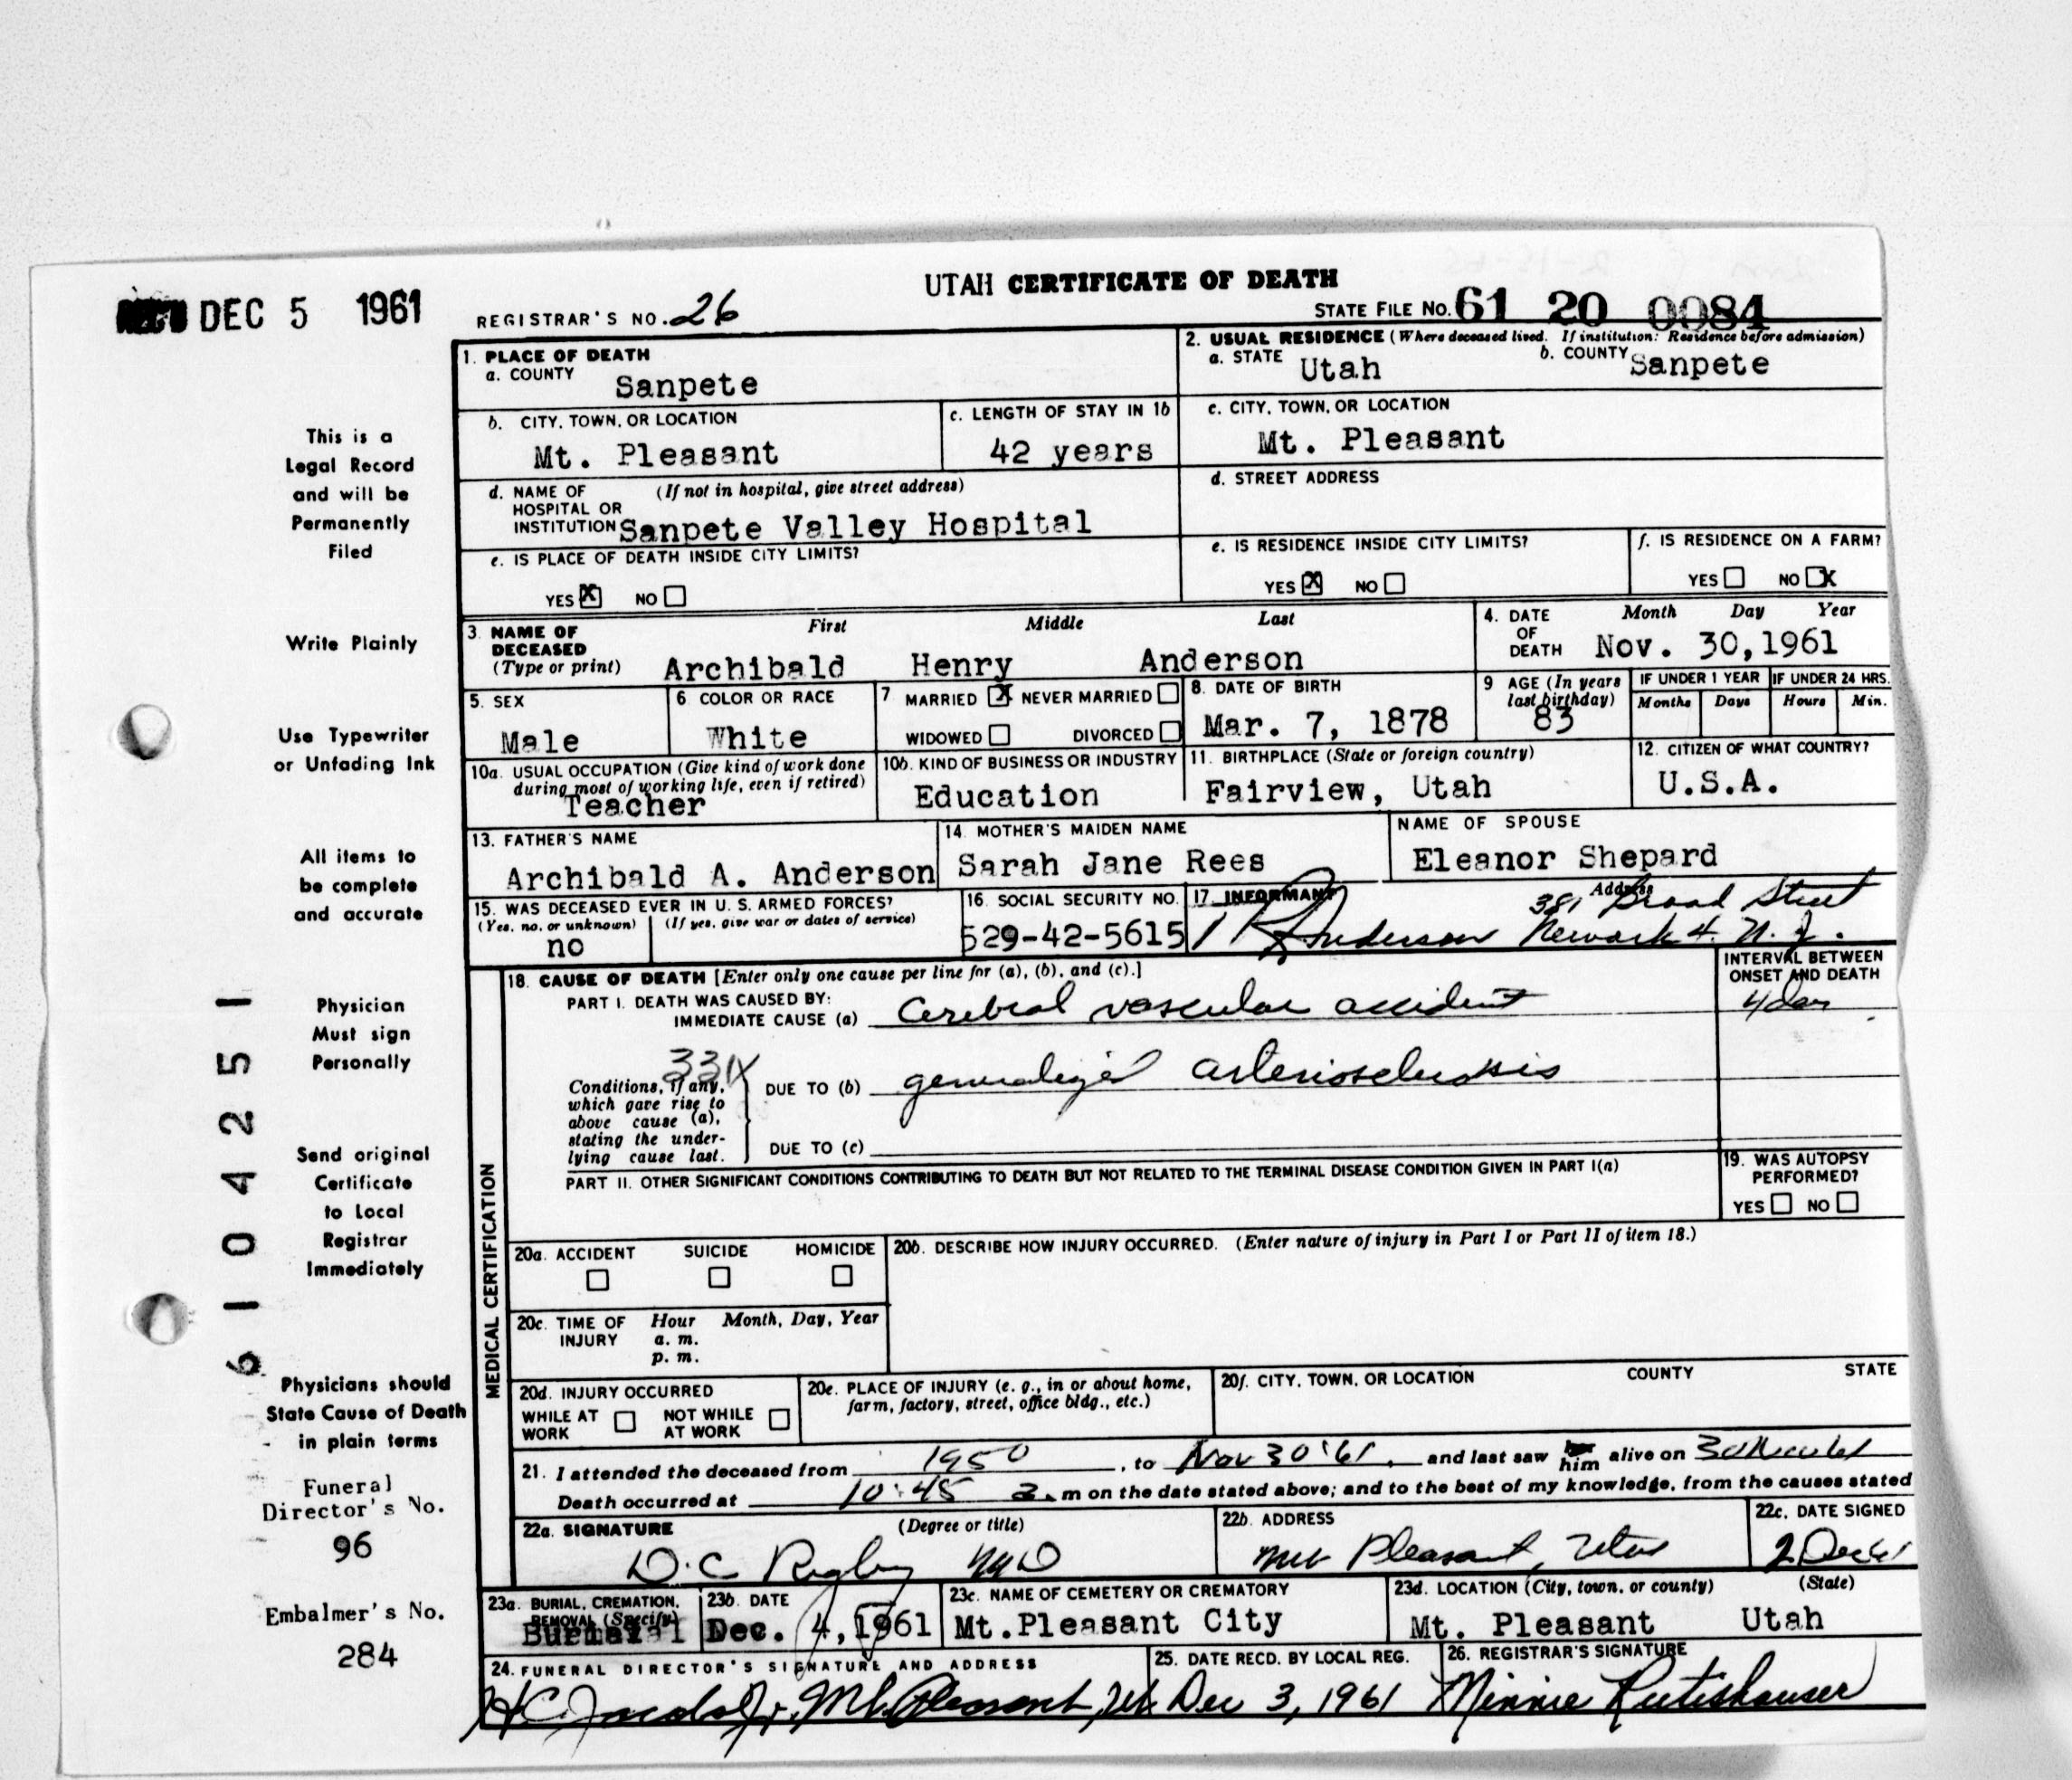 UTAH CERTIFICATE OF DEATH
DEC 5 1961
REGISTRAR'S NO. 26
STATE FILE NO. 61 20 0084
1. PLACE OF DEATH
a. COUNTY Sanpete
2. USUAL RESIDENCE (Where deceased lived. If institution: Residence before admission)
a. STATE Utah b. COUNTY Sanpete
b. CITY, TOWN, OR LOCATION Mt. Pleasant
c. LENGTH OF STAY IN 1b 42 years
c. CITY, TOWN, OR LOCATION Mt. Pleasant
d. NAME OF HOSPITAL OR INSTITUTION (If not in hospital, give street address) Sanpete Valley Hospital
d. STREET ADDRESS
e. IS PLACE OF DEATH INSIDE CITY LIMITS?
YES X NO
e. IS RESIDENCE INSIDE CITY LIMITS?
YES X NO
f. IS RESIDENCE ON A FARM?
YES NO X
3. NAME OF DECEASED (Type or print)
First Middle Last
Archibald Henry Anderson
4. DATE OF DEATH Month Day Year
Nov. 30, 1961
5. SEX Male
6 COLOR OR RACE White
7 MARRIED X NEVER MARRIED
WIDOWED DIVORCED
8. DATE OF BIRTH Mar. 7, 1878
9 AGE (In years last birthday) 83
IF UNDER 1 YEAR Months Days
IF UNDER 24 HRS. Hours Min.
10a. USUAL OCCUPATION (Give kind of work done during most of working life, even if retired) Teacher
10b. KIND OF BUSINESS OR INDUSTRY Education
11. BIRTHPLACE (State or foreign country) Fairview, Utah
12. CITIZEN OF WHAT COUNTRY? U.S.A.
13. FATHER'S NAME Archibald A. Anderson
14. MOTHER'S MAIDEN NAME Sarah Jane Rees
NAME OF SPOUSE Eleanor Shepard
15. WAS DECEASED EVER IN U. S. ARMED FORCES?
(Yes, no, or unknown) (If yes, give war or dates of service)
no
16. SOCIAL SECURITY NO. 529-42-5615
17. INFORMANT Anderson
Address 381 Broad Street
Newark 4. N. J.
18. CAUSE OF DEATH [Enter only one cause per line for (a), (b), and (c).]
INTERVAL BETWEEN ONSET AND DEATH
PART I. DEATH WAS CAUSED BY:
IMMEDIATE CAUSE (a) Cerebral vascular accident
4 days
331X
Conditions, if any, which gave rise to above cause (a), stating the underlying cause last.
DUE TO (b) generalized arteriosclerosis
DUE TO (c)
PART II. OTHER SIGNIFICANT CONDITIONS CONTRIBUTING TO DEATH BUT NOT RELATED TO THE TERMINAL DISEASE CONDITION GIVEN IN PART I(a)
19. WAS AUTOPSY PERFORMED?
YES NO
MEDICAL CERTIFICATION
20a. ACCIDENT SUICIDE HOMICIDE
20b. DESCRIBE HOW INJURY OCCURRED. (Enter nature of injury in Part I or Part II of item 18.)
20c. TIME OF INJURY Hour Month, Day, Year
a. m.
p. m.
20d. INJURY OCCURRED
WHILE AT WORK NOT WHILE AT WORK
20e. PLACE OF INJURY (e. g., in or about home, farm, factory, street, office bldg., etc.)
20f. CITY, TOWN, OR LOCATION COUNTY STATE
21. I attended the deceased from 1950, to Nov 30 '61, and last saw him alive on 30 Nov 61
Death occurred at 10:45 a. m on the date stated above; and to the best of my knowledge, from the causes stated
22a. SIGNATURE (Degree or title)
D.C. Rigby MD
22b. ADDRESS Mt Pleasant, Utah
22c. DATE SIGNED 2 Dec 61
23a. BURIAL, CREMATION, REMOVAL (Specify) Burial
23b. DATE Dec. 4, 1961
23c. NAME OF CEMETERY OR CREMATORY Mt. Pleasant City
23d. LOCATION (City, town, or county) (State)
Mt. Pleasant Utah
24. FUNERAL DIRECTOR'S SIGNATURE AND ADDRESS
H C Jacobs Jr. Mt. Pleasant, Ut
25. DATE RECD. BY LOCAL REG. Dec 3, 1961
26. REGISTRAR'S SIGNATURE Minnie Rutishauser
This is a
Legal Record
and will be
Permanently
Filed
Write Plainly
Use Typewriter
or Unfading Ink
All items to
be complete
and accurate
Physician
Must sign
Personally
Send original
Certificate
to Local
Registrar
Immediately
Physicians should
State Cause of Death
in plain terms
Funeral
Director's No.
96
Embalmer's No.
284
6104251